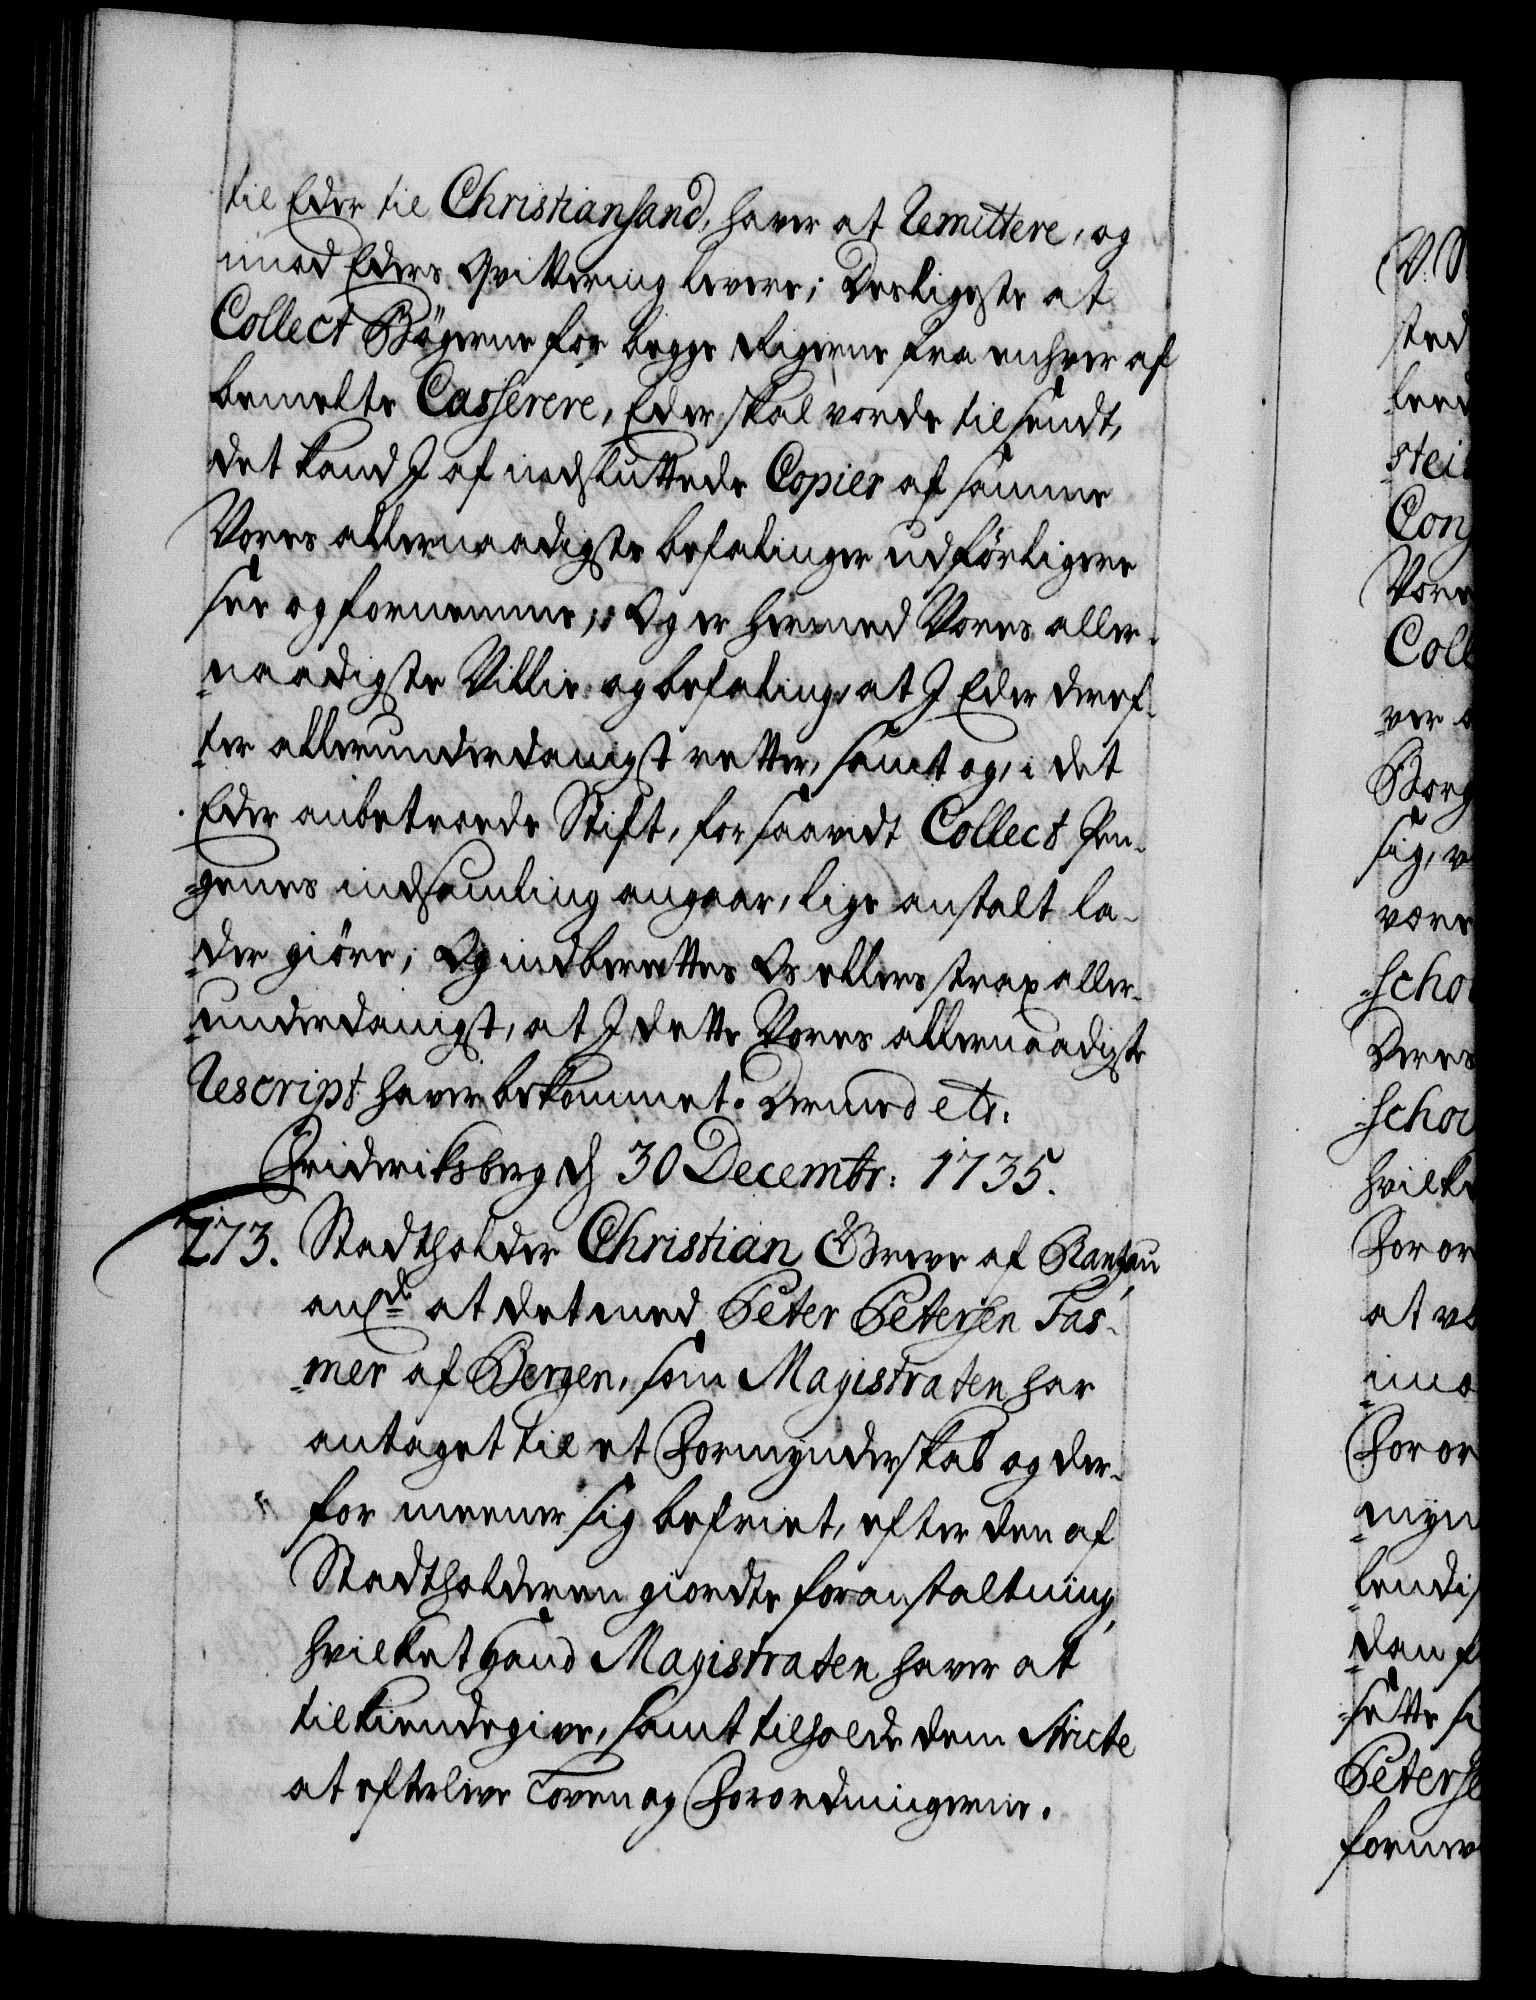 til Eder til Christiansand, haver at Remittere, og
imod Eders Qvittering levere; Desligeste at
Collect Bögerne for begge Rigerne fra enhver af
bemelte Casserere, Eder skal vorde tilsendt,
det kand I af indsluttede Copier af samme
Vores allernaadigste befalinger udförligere
see og fornemme; Og er hermed Vores aller-
naadigste Villie og befaling, at I Eder deref-
ter allerunderdanigst retter, samt og, i det
Eder anbetroede Stift, for saavidt Collect Pen-
genes indsamling angaar, lige anstalt la-
der giöre; Og indberettes Os ellers strax aller-
underdanigst, at I dette Vores allernaadigste
Rescript haver bekommet. Dermed etc:
Frideriksberg d 30 Decembr: 1735.
273. Stadtholder Christian Greve af Rantzau
anl: at det med Peter Petersen Fas-
mer af Bergen, som Magistraten har
antaget til et Formynderskab og der-
for meener sig befriet, efter den af
Stadtholderen giordte foranstaltning,
hvilket hand Magistraten haver at
tilkiendegive, samt tilholde dem stricte
at efterleve Loven og Forordningerne.
V. S
sted
leed
stei
Con
Vore
Coll
ver
Borg
sig, v
vore
scho
Deres
schou
hvilke
Foror
at vo
imo
Foror
myn
lendis
dan f
sette s
Peterse
fornev